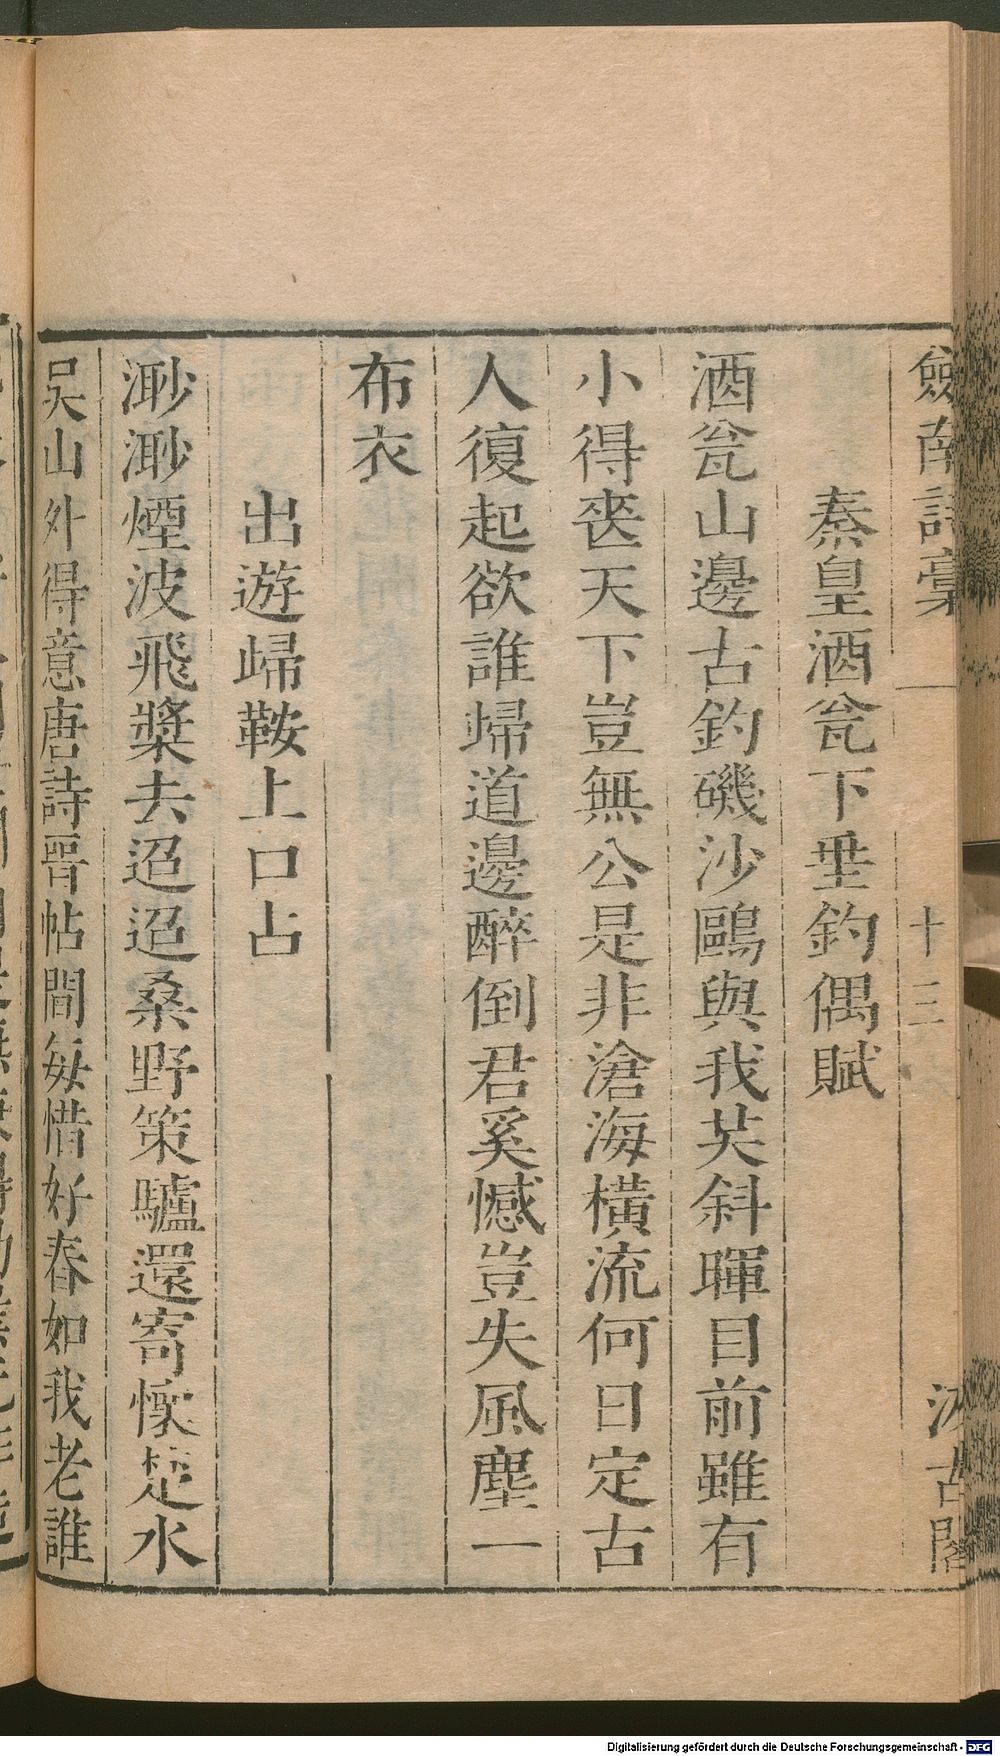 劍南詩稾 十三 汲古閣
秦皇酒瓮下垂釣偶賦
酒瓮山邊古釣磯沙鷗與我共斜暉目前雖有
小得喪天下豈無公是非滄海橫流何日定古
人復起欲誰歸道邊醉倒君奚憾豈失風塵一
布衣
出遊歸鞍上口占
渺渺煙波飛槳去迢迢桑野策驢還寄懷楚水
吳山外得意唐詩晉帖間每惜好春如我老誰
Digitalisierung gefördert durch die Deutsche Forschungsgemeinschaft - DFG